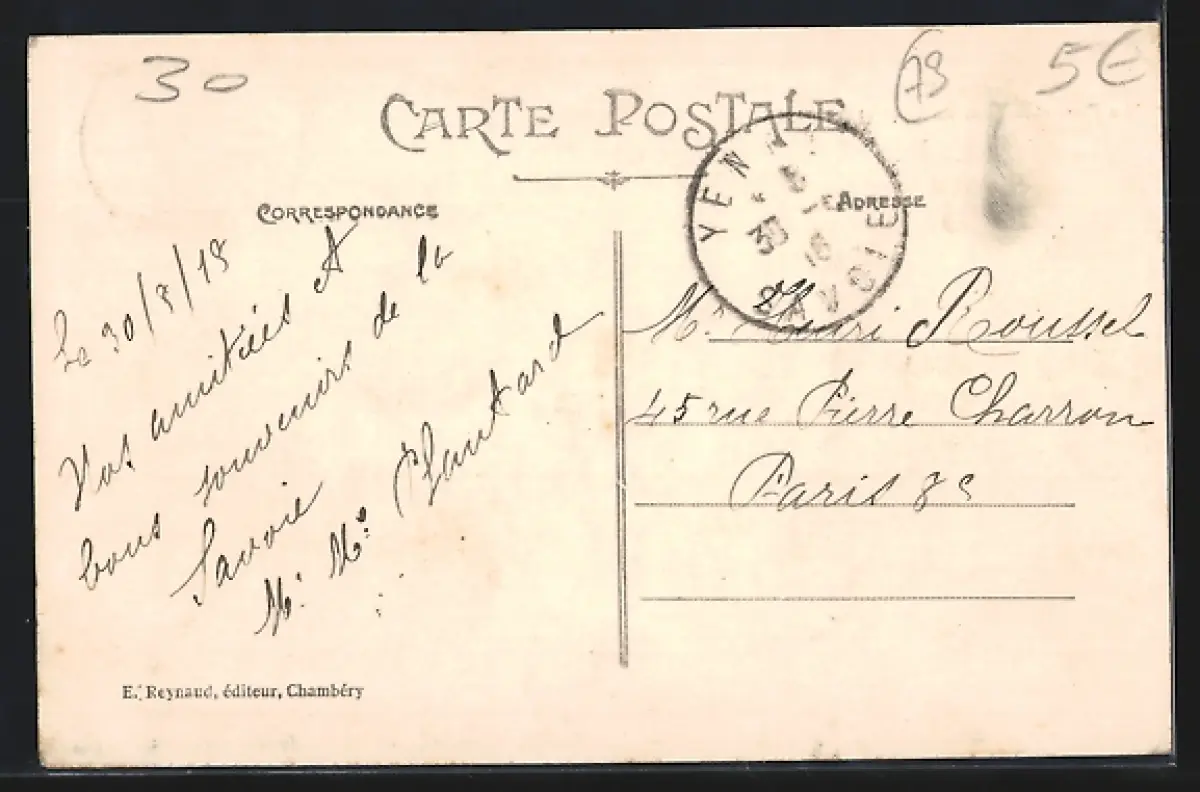 30
73
5€
CARTE POSTALE
CORRESPONDANCE
ADRESSE
YENNE
30
SAVOIE
Le 30/8/18
Vos amitiés et
bons souvenirs de la
Savoie
Mr Me
Mr Henri Roussel
45 rue Pierre Charron
Paris 8e
E. Reynaud, éditeur, Chambéry